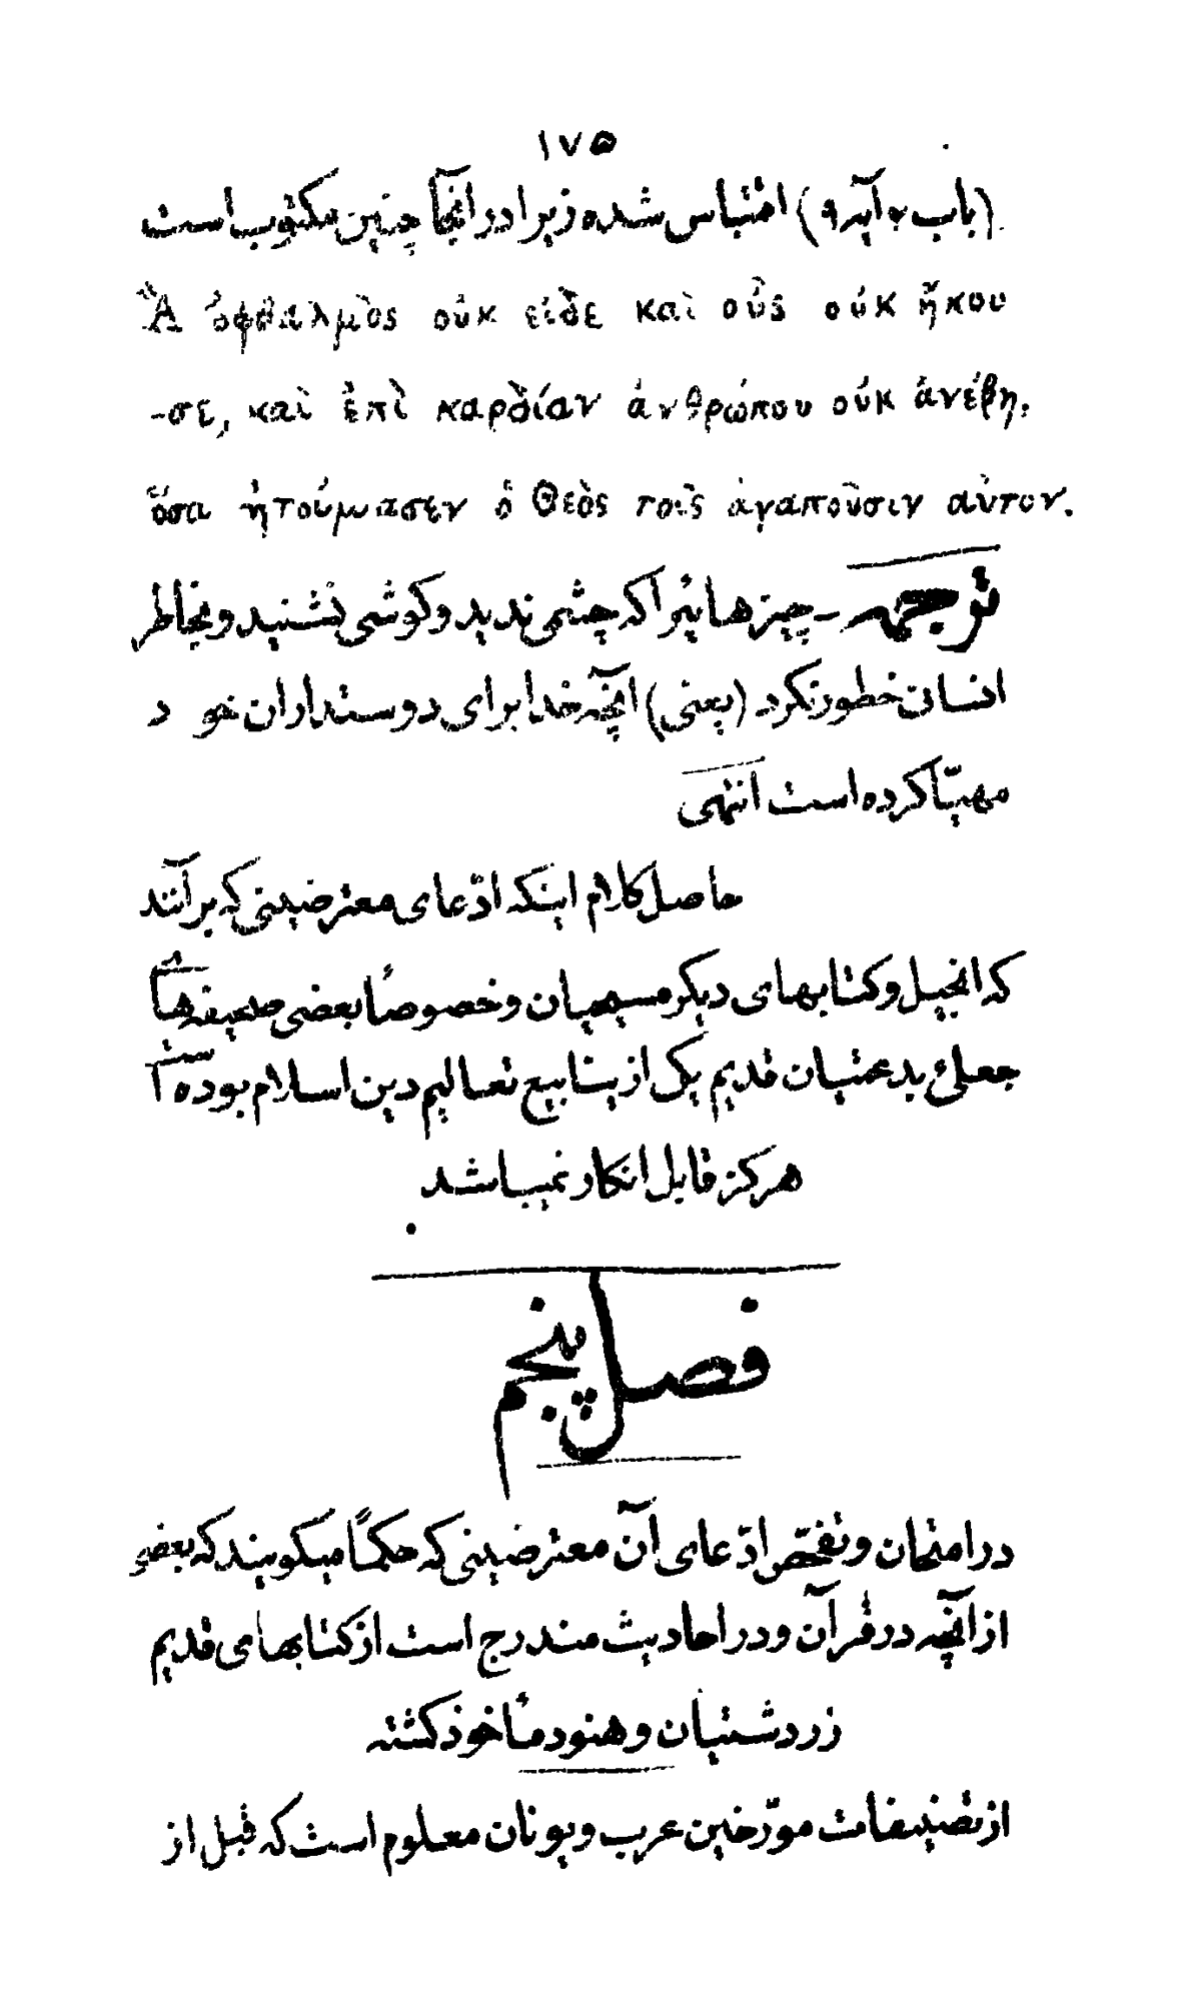 ۱۷۵
(باب ۲ آیه ۹) اقتباس شده زیرا در آنجا چنین مکتوب است
Ἃ ὀφθαλμὸς οὐκ εἶδε καὶ οὖς οὐκ ἤκου
-σε, καὶ ἐπὶ καρδίαν ἀνθρώπου οὐκ ἀνέβη,
ὅσα ἡτοίμασεν ὁ Θεὸς τοῖς ἀγαποῦσιν αὐτον.
ترجمه – چیزهائیرا که چشمی ندید و کوشی نشنید و بخاطر
انسانی خطور نکرد (یعنی) آنچه خدا برای دوستداران خود
مهیّا کرده است انتهی
حاصل کلام اینکه ادّعای معترضینی که بر آنند
که انجیل و کتابهای دیکر مسیحیان و خصوصاً بعضی صحیفه‌های
جعلی بدعتیان قدیم یکی از ینابیع تعالیم دین اسلام بوده است
هرکز قابل انکار نمیباشد
فصل پنجم
در امتحان و تفحّص ادّعای آن معترضینی که حکماً میکویند که بعضی
از آنچه در قرآن و در احادیث مندرج است از کتابهای قدیم
زردشتیان و هنود مأخوذ کشته
از تصنیفات مورّخین عرب و یونان معلوم است که قبل از